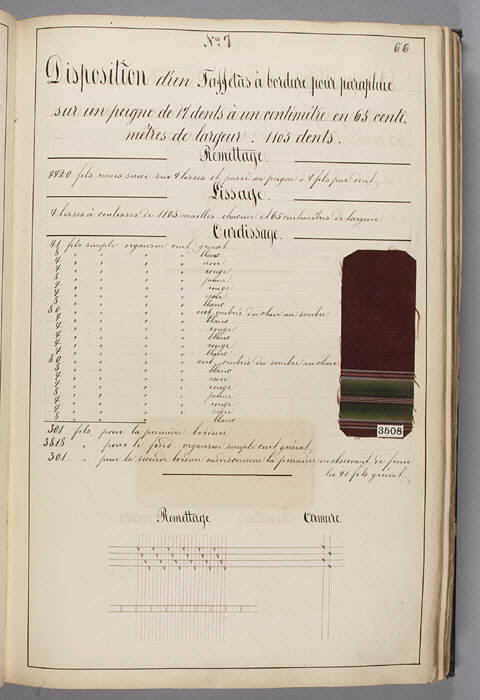 No 7
66
Disposition d'un Taffetas à bordure pour parapluie
sur un peigne de 17 dents à un centimètre en 65 centi
mètres de largeur. 1105 dents.
Remettage.
4420 fils remis suivi sur 4 lisses et passé au peigne à 4 fils par dent
Lissage.
4 lisses à coulisses de 1105 mailles chacune et 65 centimètres de largeur
Ourdissage.
41 fils simple organsin cuit grenat
8 " " " " blanc
4 " " " " noir
4 " " " " rouge
" " " " jaune
" " " " rouge
4 " " " " noir
8 " " " " blanc
80 " " " " cuit ombrés du clair au sombre
" " " " blanc
4 " " " " rouge
4 " " " " blanc
4 " " " " rouge
" " " " blanc
80 " " " " cuit ombrés du sombre au clair
8 " " " " blanc
4 " " " " noir
4 " " " " rouge
" " " " jaune
4 " " " " rouge
4 " " " " noir
8 " " " " blanc
301 fils pour la première bordure
3818 " pour le fond organsin simple cuit grenat
301 " pour la seconde bordure ourdissement la première en observant de finir
les 41 fils grenat
3508
Remettage
Armure